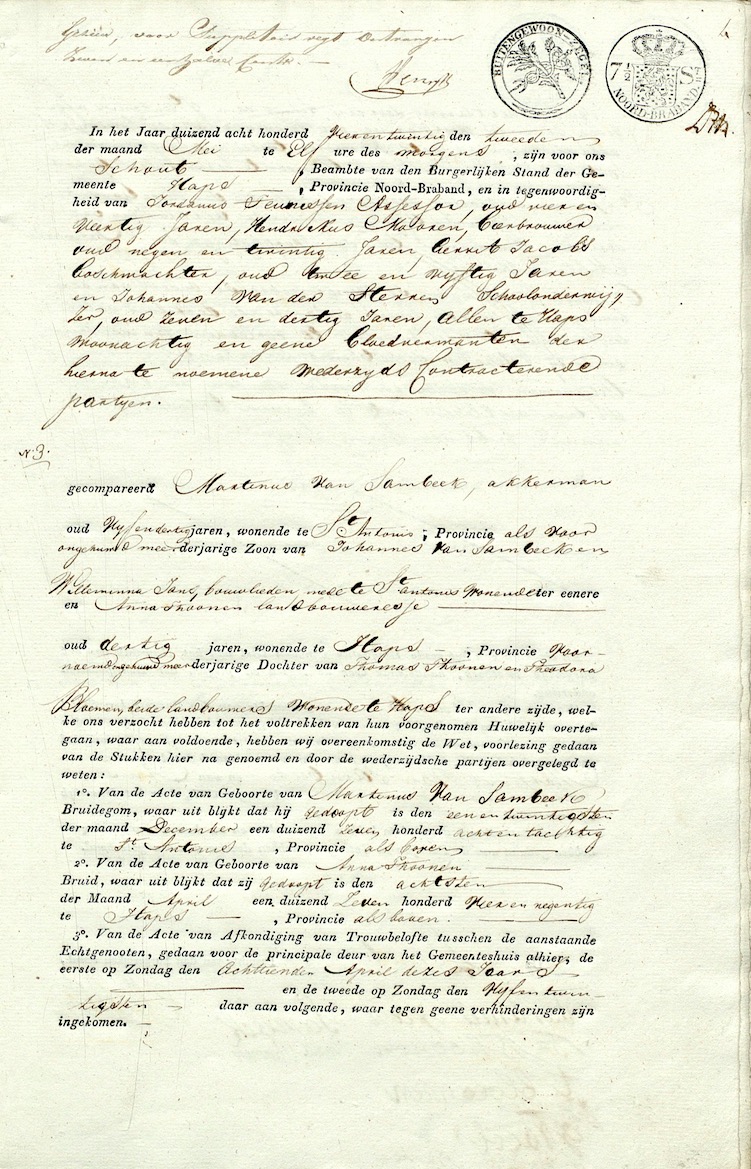 Gezien, voor Suppletoir regt Ontvangen
Zeven en een halve Cents
BUITENGEWOON-ZEGEL
7 1/2 S
NOORD-BRABAND
In het Jaar duizend acht honderd Vier en twintig den tweeden
der maand Mei te Elf ure des morgens, zijn voor ons
Schout, Beambte van den Burgerlijken Stand der Ge-
meente Haps, Provincie Noord-Braband, en in tegenwoordig-
heid van Jordanus Teunissen Assessor, oud vier en
veertig Jaren, Hendrikus Mooren, bierbrouwer
oud negen en twintig Jaren, Gerrit Jacobs
boschwachter, oud twee en vijftig Jaren
en Johannes Van der Sterren Schoolonderwij,
zer, oud zeven en dertig Jaren, allen te Haps
woonachtig en geene bloedverwanten der
hierna te noemene wederzyds Contracterende
partyen.
N. 3.
gecompareerd Martinus Van Sambeek, akkerman
oud Vyf en dertig jaren, wonende te St Antonis, Provincie als voor
ongehuwd meerderjarige Zoon van Johannes Van Sambeek en
Willeminna Jans, bouwlieden, mede te St antonis wonende ter eenere
en Anna Thoonen landbouweresse
oud dertig jaren, wonende te Haps, Provincie voor-
noemd ongehuwd meerderjarige Dochter van Thomas Thoonen en Theodora
Bloemen, beide landbouwers wonende te Haps ter andere zijde, wel-
ke ons verzocht hebben tot het voltrekken van hun voorgenomen Huwelijk overte-
gaan, waar aan voldoende, hebben wij overeenkomstig de Wet, voorlezing gedaan
van de Stukken hier na genoemd en door de wederzijdsche partijen overgelegd te
weten:
1º. Van de Acte van Geboorte van Martinus Van Sambeek
Bruidegom, waar uit blijkt dat hij gedoopt is den een en twintigsten
der maand December een duizend zeven honderd acht en tachtig
te St. Antonis, Provincie als boven
2º. Van de Acte van Geboorte van Anna Thoonen
Bruid, waar uit blijkt dat zij gedoopt is den achtsten
der Maand April een duizend Zeven honderd vier en negentig
te Haps, Provincie als boven.
3º. Van de Acte van Afkondiging van Trouwbelofte tusschen de aanstaande
Echtgenooten, gedaan voor de principale deur van het Gemeenteshuis alhier; de
eerste op Zondag den Achttienden April dezes Jaars
en de tweede op Zondag den Vyf en twin-
tigsten daar aan volgende, waar tegen geene verhinderingen zijn
ingekomen.